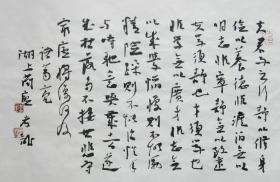 夫君子之行静以修身
俭以养德非澹泊无以
明志非宁静无以致远
夫学须静也才须学也
非学无以广才非志无
以成学慆慢则不能励
精险躁则不能治性年
与时驰意与岁去遂
成枯落多不接世悲守
穷庐将復何及
诸葛亮
湖上